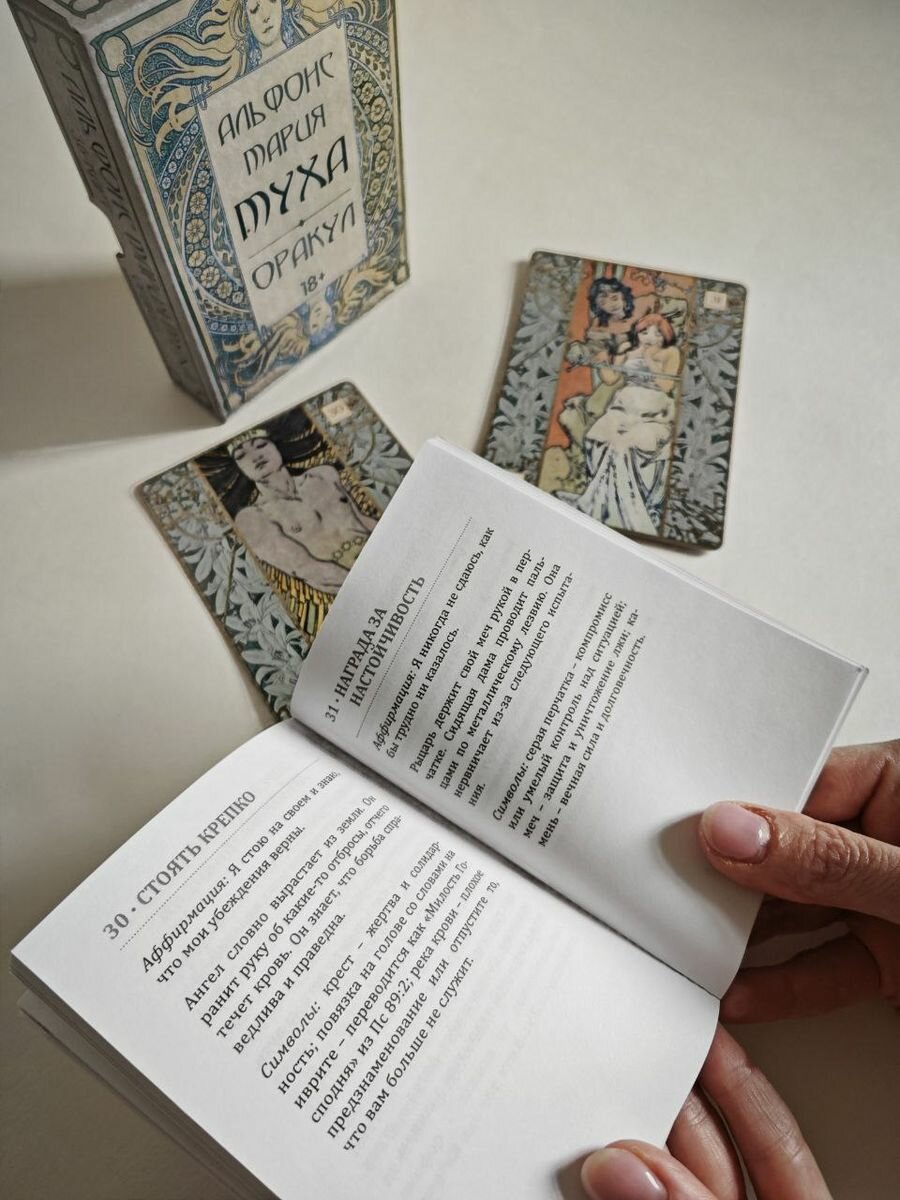 АЛЬФОНС
МАРИЯ
МУХА
ОРАКУЛ
18+
30 • СТОЯТЬ КРЕПКО
Аффирмация: Я стою на своем и знаю,
что мои убеждения верны.
Ангел словно вырастает из земли. Он
ранит руку об какие-то отбросы, отчего
течет кровь. Он знает, что борьба спра-
ведлива и праведна.
Символы: крест – жертва и солидар-
ность; повязка на голове со словами на
иврите – переводится как «Милость Го-
сподня» из Пс 89:2; река крови – плохое
предзнаменование или отпустите то,
что вам больше не служит.
31 • НАГРАДА ЗА
НАСТОЙЧИВОСТЬ
Аффирмация: Я никогда не сдаюсь, как
бы трудно ни казалось.
Рыцарь держит свой меч рукой в пер-
чатке. Сидящая дама проводит паль-
цами по металлическому лезвию. Она
нервничает из-за следующего испыта-
ния.
Символы: серая перчатка – компромисс
или умелый контроль над ситуацией;
меч – защита и уничтожение лжи; ка-
мень – вечная сила и долговечность.